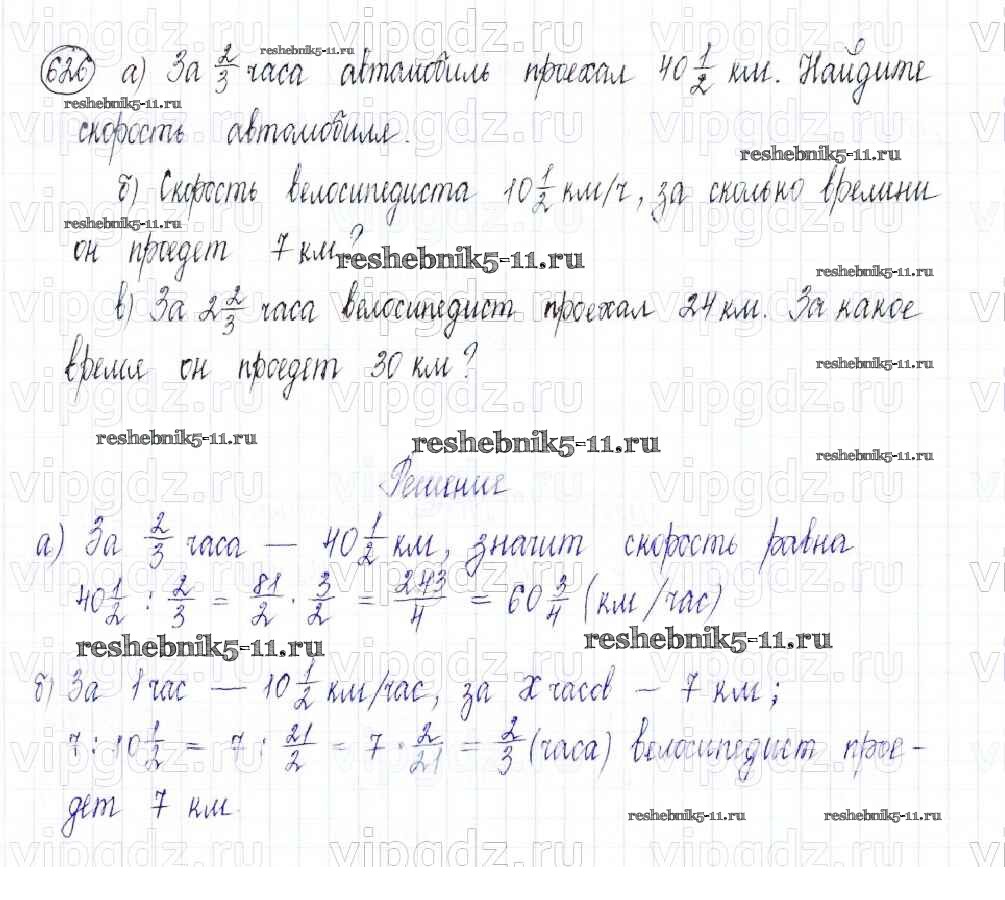 626 а) За 2/3 часа автомобиль проехал 40 1/2 км. Найдите
скорость автомобиля.
б) Скорость велосипедиста 10 1/2 км/ч, за сколько времени
он проедет 7 км?
в) За 2 2/3 часа велосипедист проехал 24 км. За какое
время он проедет 30 км?
Решение
а) За 2/3 часа — 40 1/2 км, значит скорость равна
40 1/2 : 2/3 = 81/2 · 3/2 = 243/4 = 60 3/4 (км/час)
б) За 1 час — 10 1/2 км/час, за x часов — 7 км;
7 : 10 1/2 = 7 : 21/2 = 7 · 2/21 = 2/3 (часа) велосипедист прое-
дет 7 км.
reshebnik5-11.ru
reshebnik5-11.ru
reshebnik5-11.ru
reshebnik5-11.ru
reshebnik5-11.ru
reshebnik5-11.ru
reshebnik5-11.ru
reshebnik5-11.ru
reshebnik5-11.ru
reshebnik5-11.ru
reshebnik5-11.ru
reshebnik5-11.ru
reshebnik5-11.ru
reshebnik5-11.ru
vipgdz.ru